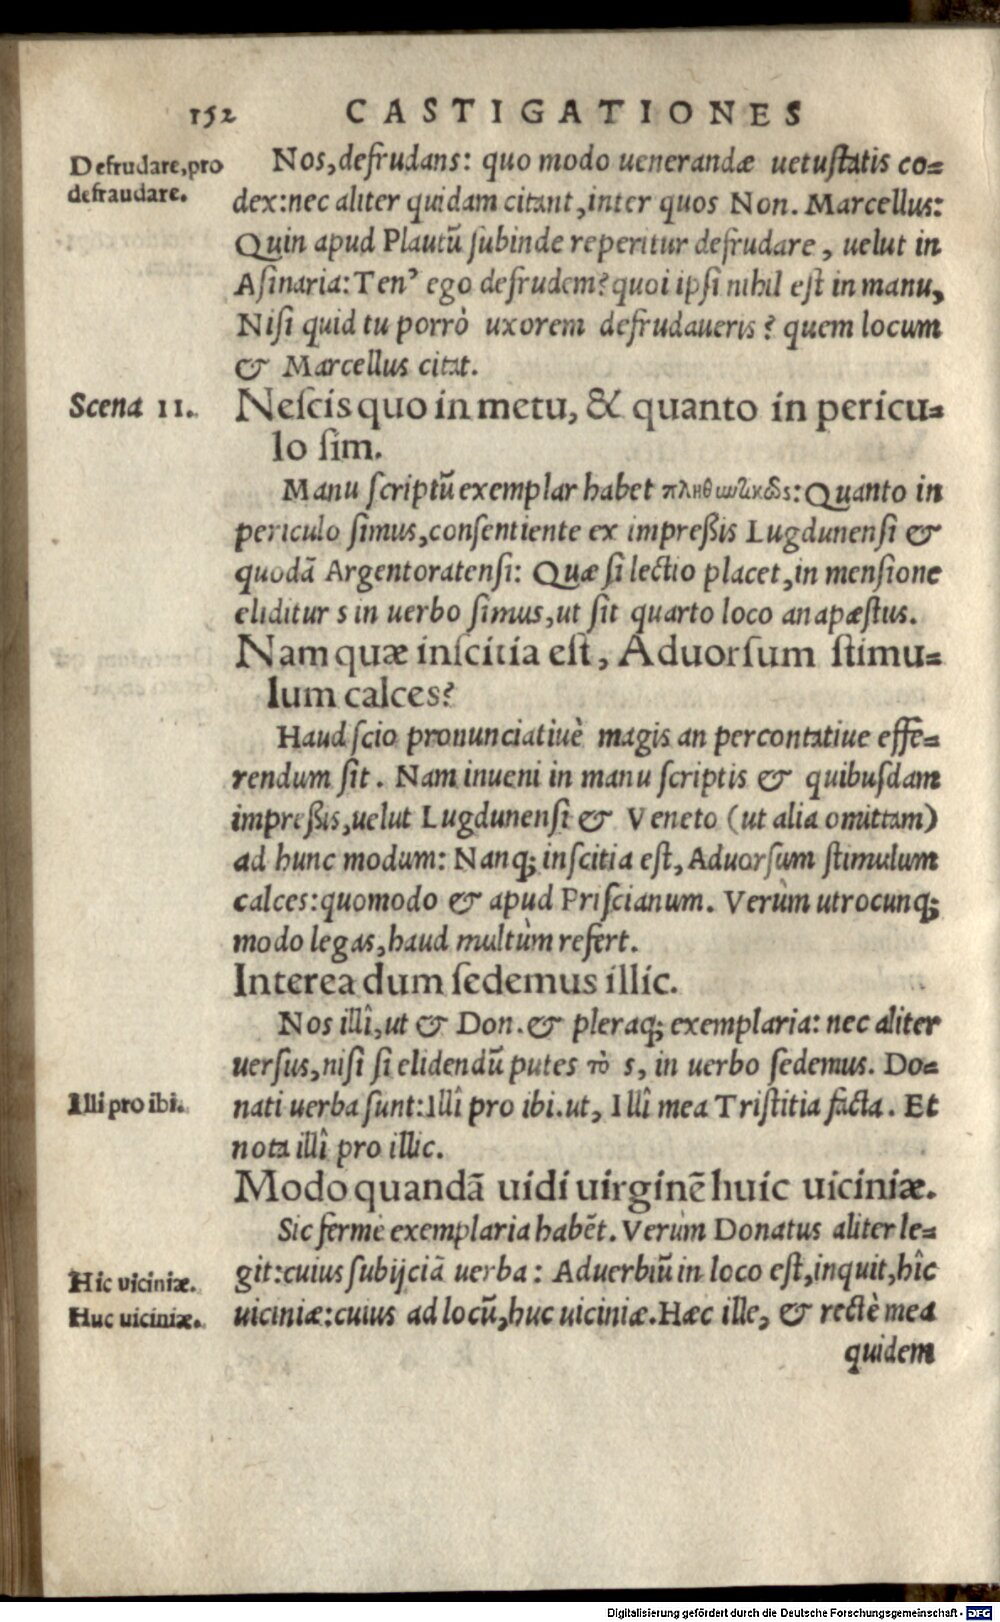 152 CASTIGATIONES
Defrudare, pro
defraudare.
Nos, defrudans: quo modo uenerandæ uetustatis co=
dex: nec aliter quidam citant, inter quos Non. Marcellus:
Quin apud Plautũ subinde reperitur defrudare, uelut in
Asinaria: Ten' ego defrudem? quoi ipsi nihil est in manu,
Nisi quid tu porrò uxorem defrudaueris? quem locum
& Marcellus citat.
Scena II.
Nescis quo in metu, & quanto in pericu=
lo sim.
Manu scriptũ exemplar habet πληθωτικῶς: Quanto in
periculo simus, consentiente ex impreßis Lugdunensi &
quodã Argentoratensi: Quæ si lectio placet, in mensione
eliditur s in uerbo simus, ut sit quarto loco anapæstus.
Nam quæ inscitia est, Aduorsum stimu=
lum calces?
Haud scio pronunciatiuè magis an percontatiue effe=
rendum sit. Nam inueni in manu scriptis & quibusdam
impreßis, uelut Lugdunensi & Veneto (ut alia omittam)
ad hunc modum: Nanq; inscitia est, Aduorsum stimulum
calces: quomodo & apud Priscianum. Verùm utrocunq;
modo legas, haud multùm refert.
Interea dum sedemus illic.
Nos illî, ut & Don. & pleraq; exemplaria: nec aliter
uersus, nisi si elidendũ putes τὸ s, in uerbo sedemus. Do=
Illi pro ibi.
nati uerba sunt: Illî pro ibi. ut, Illî mea Tristitia facta. Et
nota illî pro illic.
Modo quandã uidi uirginẽ huic uiciniæ.
Sic ferme exemplaria habẽt. Verùm Donatus aliter le=
Hic uiciniæ.
git: cuius subijciã uerba: Aduerbiũ in loco est, inquit, hîc
Huc uiciniæ.
uiciniæ: cuius ad locũ, huc uiciniæ. Hæc ille, & rectè mea
quidem
Digitalisierung gefördert durch die Deutsche Forschungsgemeinschaft - DFG